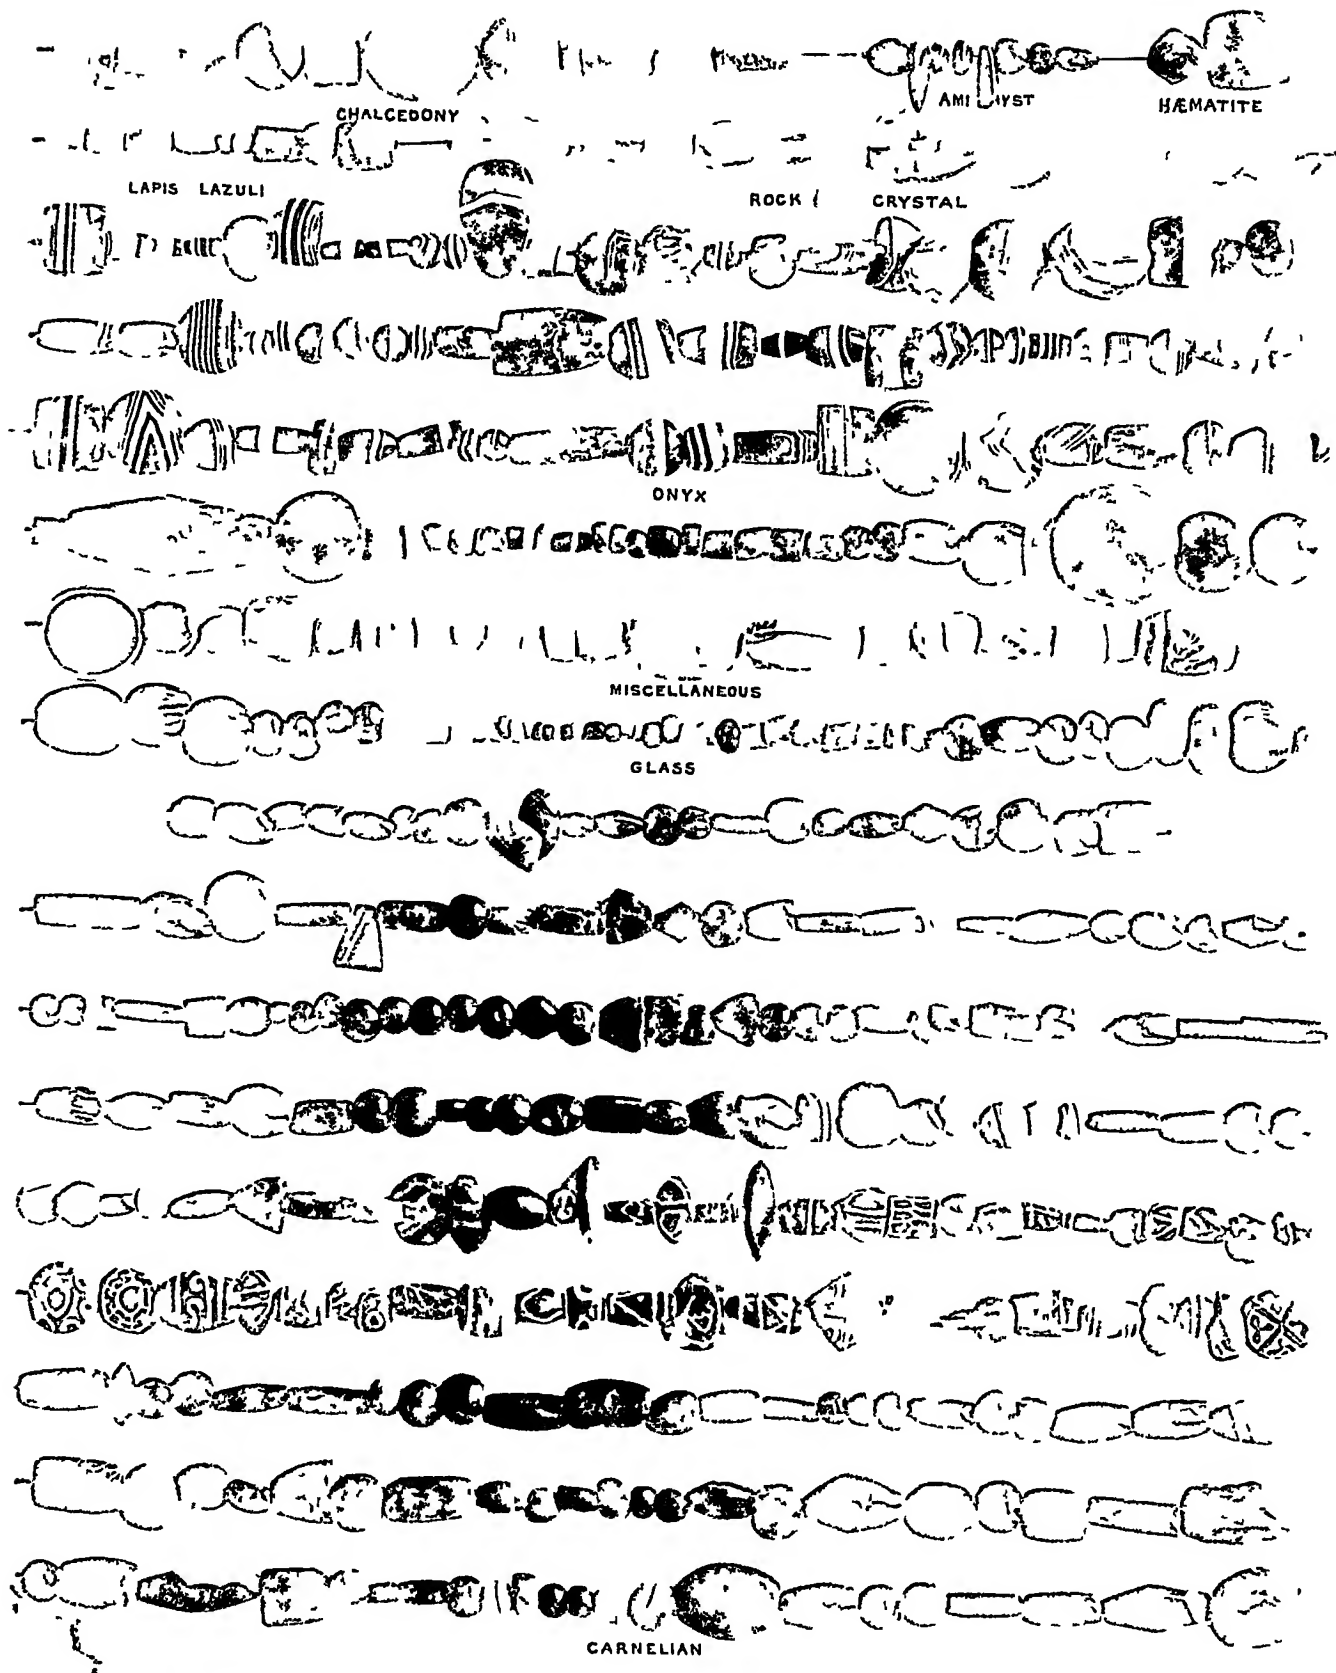 CHALCEDONY
HÆMATITE
LAPIS LAZULI
ROCK CRYSTAL
ONYX
MISCELLANEOUS
GLASS
CARNELIAN